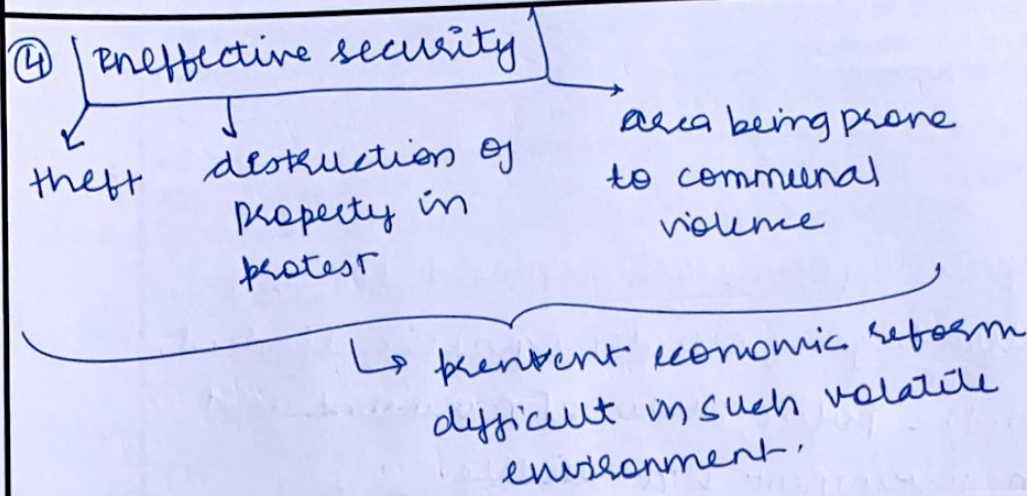 ④ Ineffective security
theft
destruction of
property in
protest
area being prone
to communal
violence
↳ prevent economic reform
difficult in such volatile
environment.